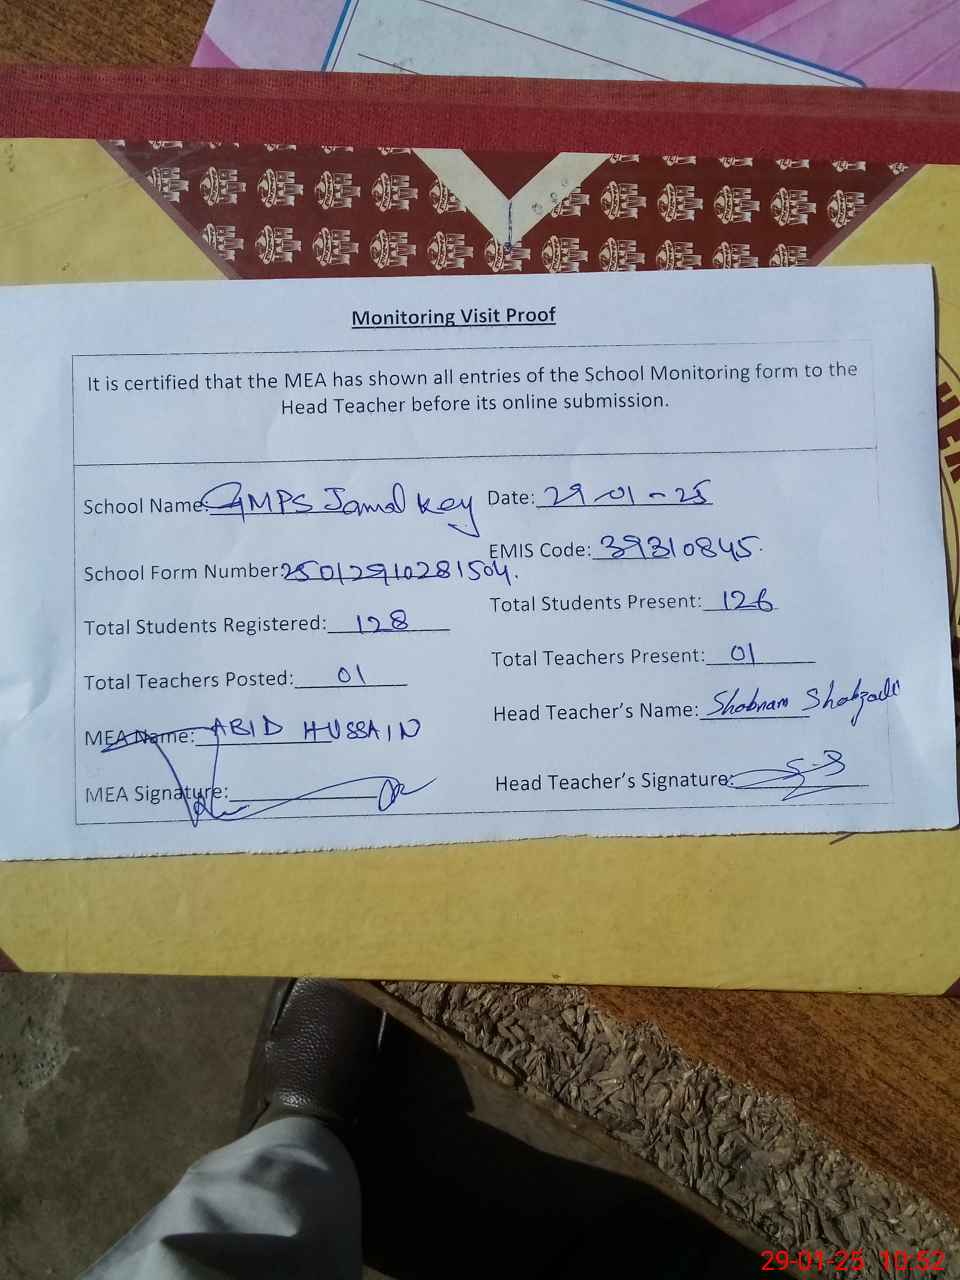 Monitoring Visit Proof
It is certified that the MEA has shown all entries of the School Monitoring form to the
Head Teacher before its online submission.
School Name: GMPS Jamal Key Date: 29-01-25
School Form Number: 25012910281504. EMIS Code: 39310845.
Total Students Registered: 128 Total Students Present: 126
Total Teachers Posted: 01 Total Teachers Present: 01
MEA Name: ABID HUSSAIN Head Teacher's Name: Shabnam Shahzadi
MEA Signature: Head Teacher's Signature: S-S
29-01-25 10:52